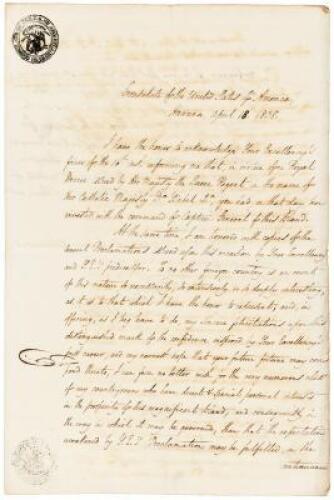 Consulate of the United States of America
Havana April 18 1838.
I have the honor to acknowledge Your Excellency's
favor of the 16th inst. informing me that, in virtue of a Royal
Decree issued by Her Majesty the Queen Regent in the name of
Her Catholic Majesty Da Isabel 2a, you had on that day
invested with the command of Captain General of this Island.
At the same time I am honored with copies of the
Proclamations issued on this occasion by Your Excellency
and predecessor. To no other foreign country is an event
of this nature so constantly, so intensely, so deeply interesting,
as it is to that which I have the honor to represent; and, in
offering, as I beg leave to do my sincere felicitations upon this
distinguished mark of the confidence reposed in Your Excellency
and my earnest hope that your future may
, I can give no better wish to the very numerous
of my countrymen who have direct & special personal interests
in the prosperity of this magnificent Island, and consequently in
the way in which it may be governed, than that the expectations
awakened by Proclamation may be fulfilled, in the